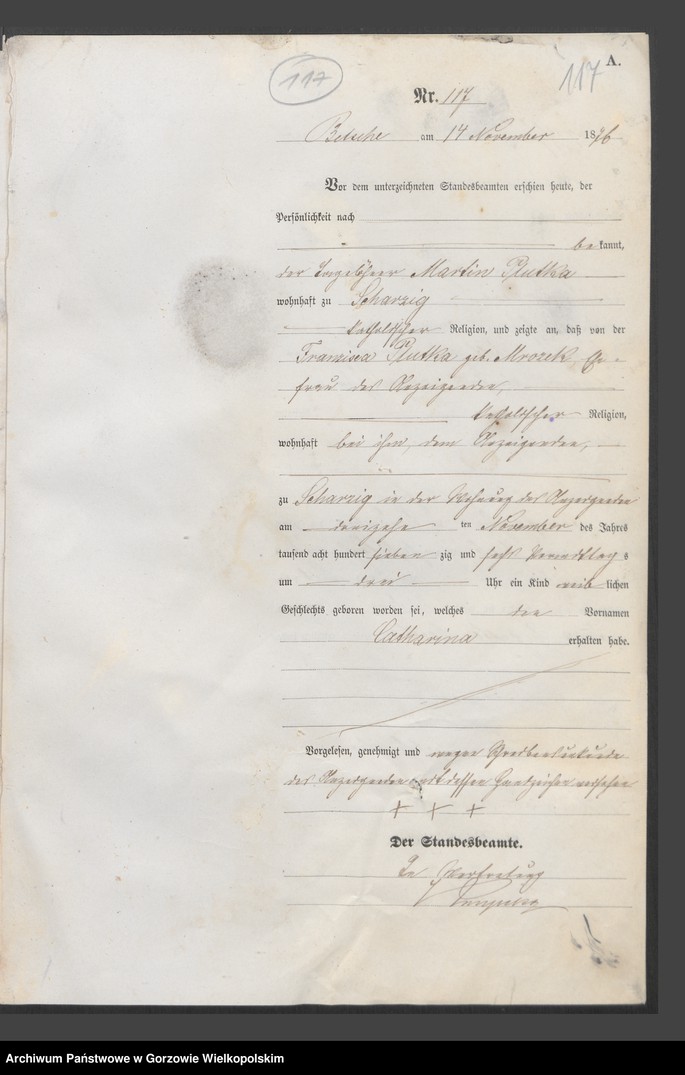 117
117 A.
Nr. 117
Betsche am 14 November 1876
Vor dem unterzeichneten Standesbeamten erschien heute, der
Persönlichkeit nach
bekannt,
der Tagelöhner Martin Plutka
wohnhaft zu Scharzig
katholischer Religion, und zeigte an, daß von der
Francisca Plutka geb. Mrozek, Ehe-
frau des Anzeigenden,
katholischer Religion,
wohnhaft bei ihm, dem Anzeigenden,
zu Scharzig in der Wohnung des Anzeigenden
am dreizehn ten November des Jahres
tausend acht hundert sieben zig und sechs Vormittag s
um drei Uhr ein Kind weib lichen
Geschlechts geboren worden sei, welches den Vornamen
Catharina erhalten habe.
Vorgelesen, genehmigt und wegen
des Anzeigenden mit dessen Handzeichen versehen
+ + +
Der Standesbeamte.
In Vertretung
Archiwum Państwowe w Gorzowie Wielkopolskim